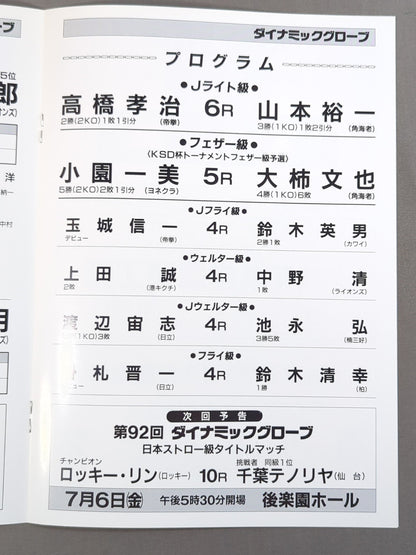 ブ
ダイナミックグローブ
5位
郎
オンズ)
プログラム
●Jライト級●
高橋孝治 6R 山本裕一
2勝(2KO)1敗1引分 (帝拳) 3勝(1KO)1敗2引分 (角海老)
●フェザー級●
(KSD杯トーナメントフェザー級予選)
小園一美 5R 大柿文也
5勝(2KO)2敗1引分 (ヨネクラ) 4勝(1KO)6敗 (角海老)
●Jフライ級●
玉城信一 4R 鈴木英男
デビュー (帝拳) 2勝1敗 (カワイ)
●ウェルター級●
上田誠 4R 中野清
2敗 (港キクチ) 1敗 (ライオンズ)
●Jウェルター級●
渡辺宙志 4R 池永弘
(1KO)3敗 (日立) 3勝5敗 (楠三好)
●フライ級●
札晋一 4R 鈴木清幸
(日立) 1勝 (柏)
洋
納一
中村
月
ズ)
次回予告
第92回 ダイナミックグローブ
日本ストロー級タイトルマッチ
チャンピオン 挑戦者 同級1位
ロッキー・リン(ロッキー) 10R 千葉テノリヤ(仙台)
7月6日(金) 午後5時30分開場 後楽園ホール